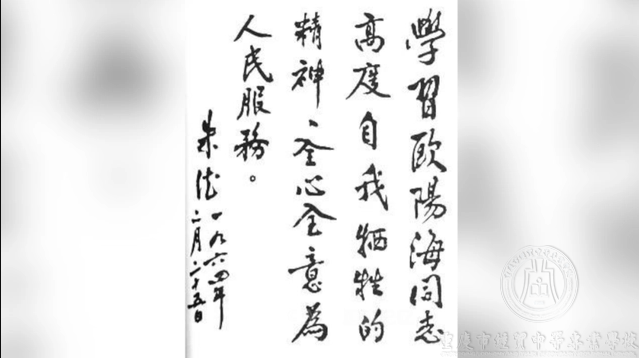 學習歐陽海同志
高度自我牺牲的
精神、全心全意為
人民服務。
朱德 一九六四年
二月二十五日
重慶市 中等專業學校